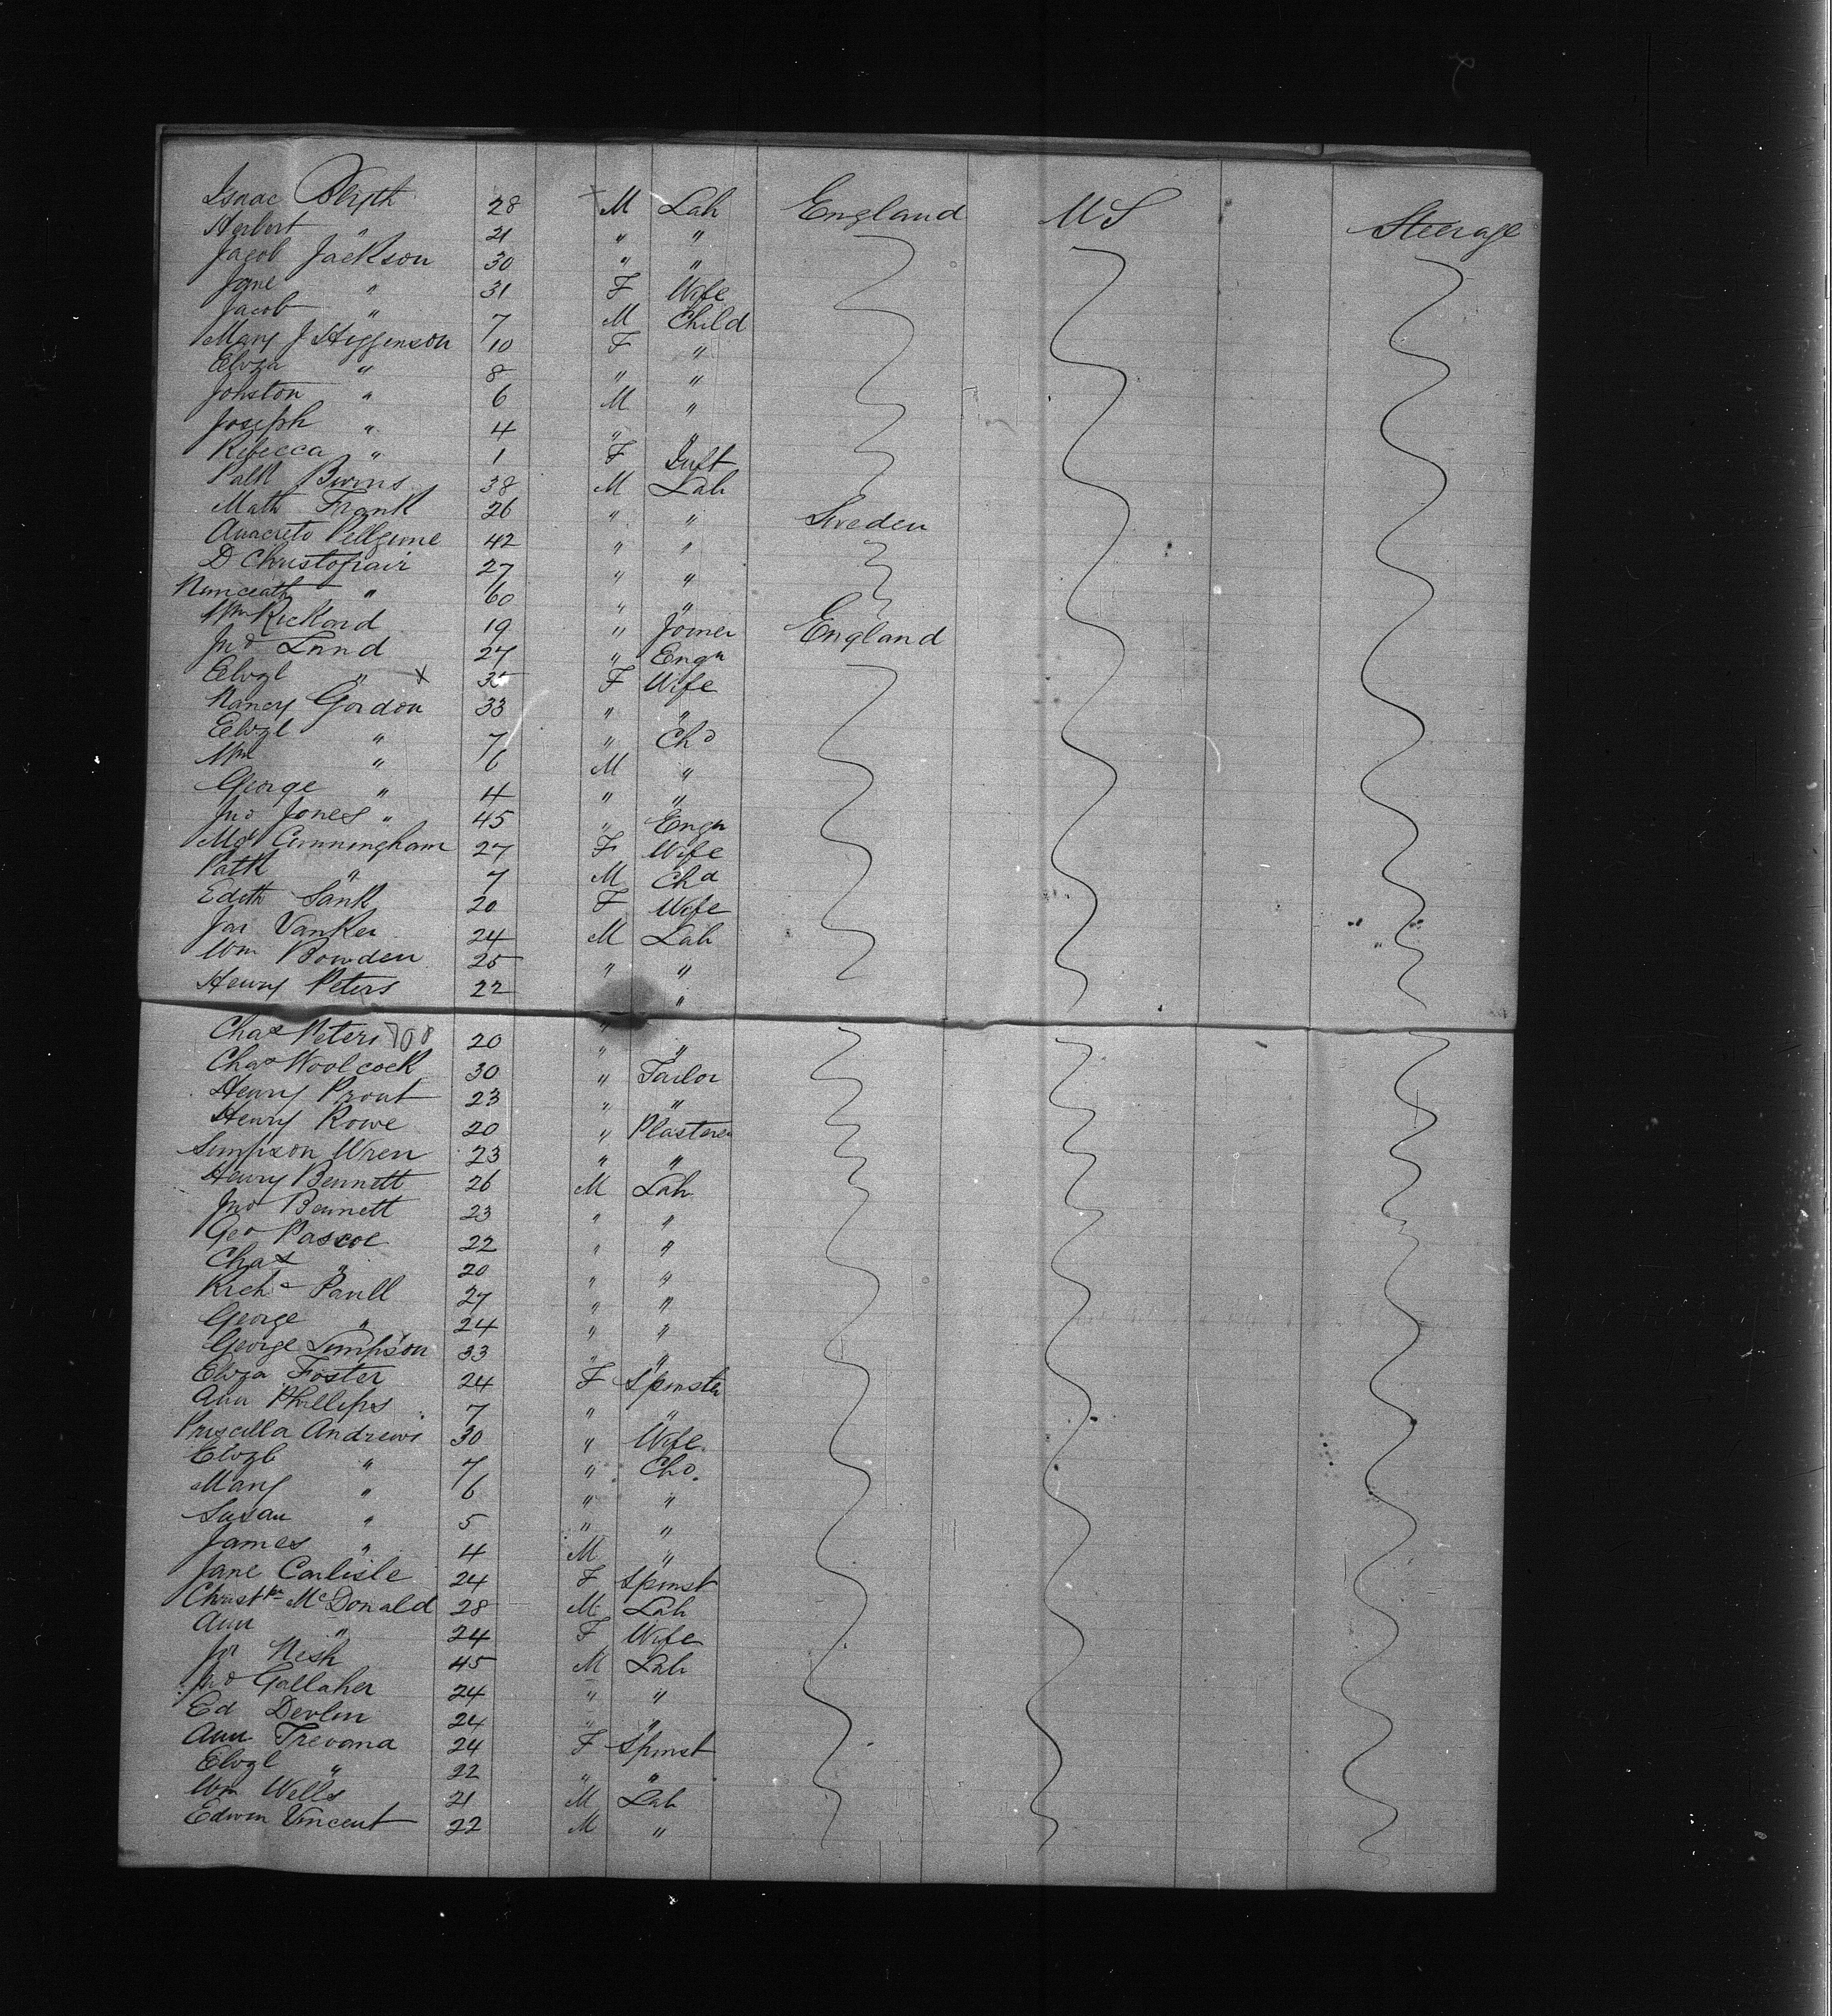 Isaac Blyth 28 M Lab England US Steerage
Herbert " 21 " "
Jacob Jackson 30 " "
Jane " 31 F Wife
Jacob " 7 M Child
Mary J Higginson 10 F "
Eliza " 8 " "
Johston " 6 M "
Joseph " 4 " "
Rebecca " 1 F Inft
Patk Burns 38 M Lab
Math Frank 26 " " Sweden
42 " "
D 27 " "
" 60 " "
Wm Rickard 19 " Joiner England
Jno Lund 27 " Engn
Elizbt " X 35 F Wife
Nancy Gordon 33 " "
Elizbt " 7 " Chd
Wm " 6 M "
George " 4 " "
Jno Jones " 45 " Engn
Mgt Cunningham 27 F Wife
Patk " 7 M Chd
Edith Sank 20 F Wife
Jas Vanker 24 M Lab
Wm Bowden 25 " "
Henry Peters 22 " "
Chas Peters 708 20 " "
Chas Woolcock 30 " Tailor
Henry Prout 23 " "
Henry Rowe 20 " Plasterer
Simpson Wren 23 " "
Henry Bennett 26 M Lab
Jno Bennett 23 " "
Geo Pascoe 22 " "
Chas " 20 " "
Richd Paull 27 " "
George " 24 " "
George Simpson 33 " "
Eliza Foster 24 F Spinster
Ann Phillips 7 " "
Priscilla Andrews 30 " Wife
Elizbt " 7 " Chd.
Mary " 6 " "
Susan " 5 " "
James " 4 M "
Jane Carlisle 24 F Spinst
Christr McDonald 28 M Lab
Ann " 24 F Wife
Nish 45 M Lab
Jno Gallaher 24 " "
Ed Devlin 24 " "
Ann Trevana 24 F Spinst
Elizbt " 22 " "
Wm Wells 21 M Lab
Edwin Vincent 22 M "